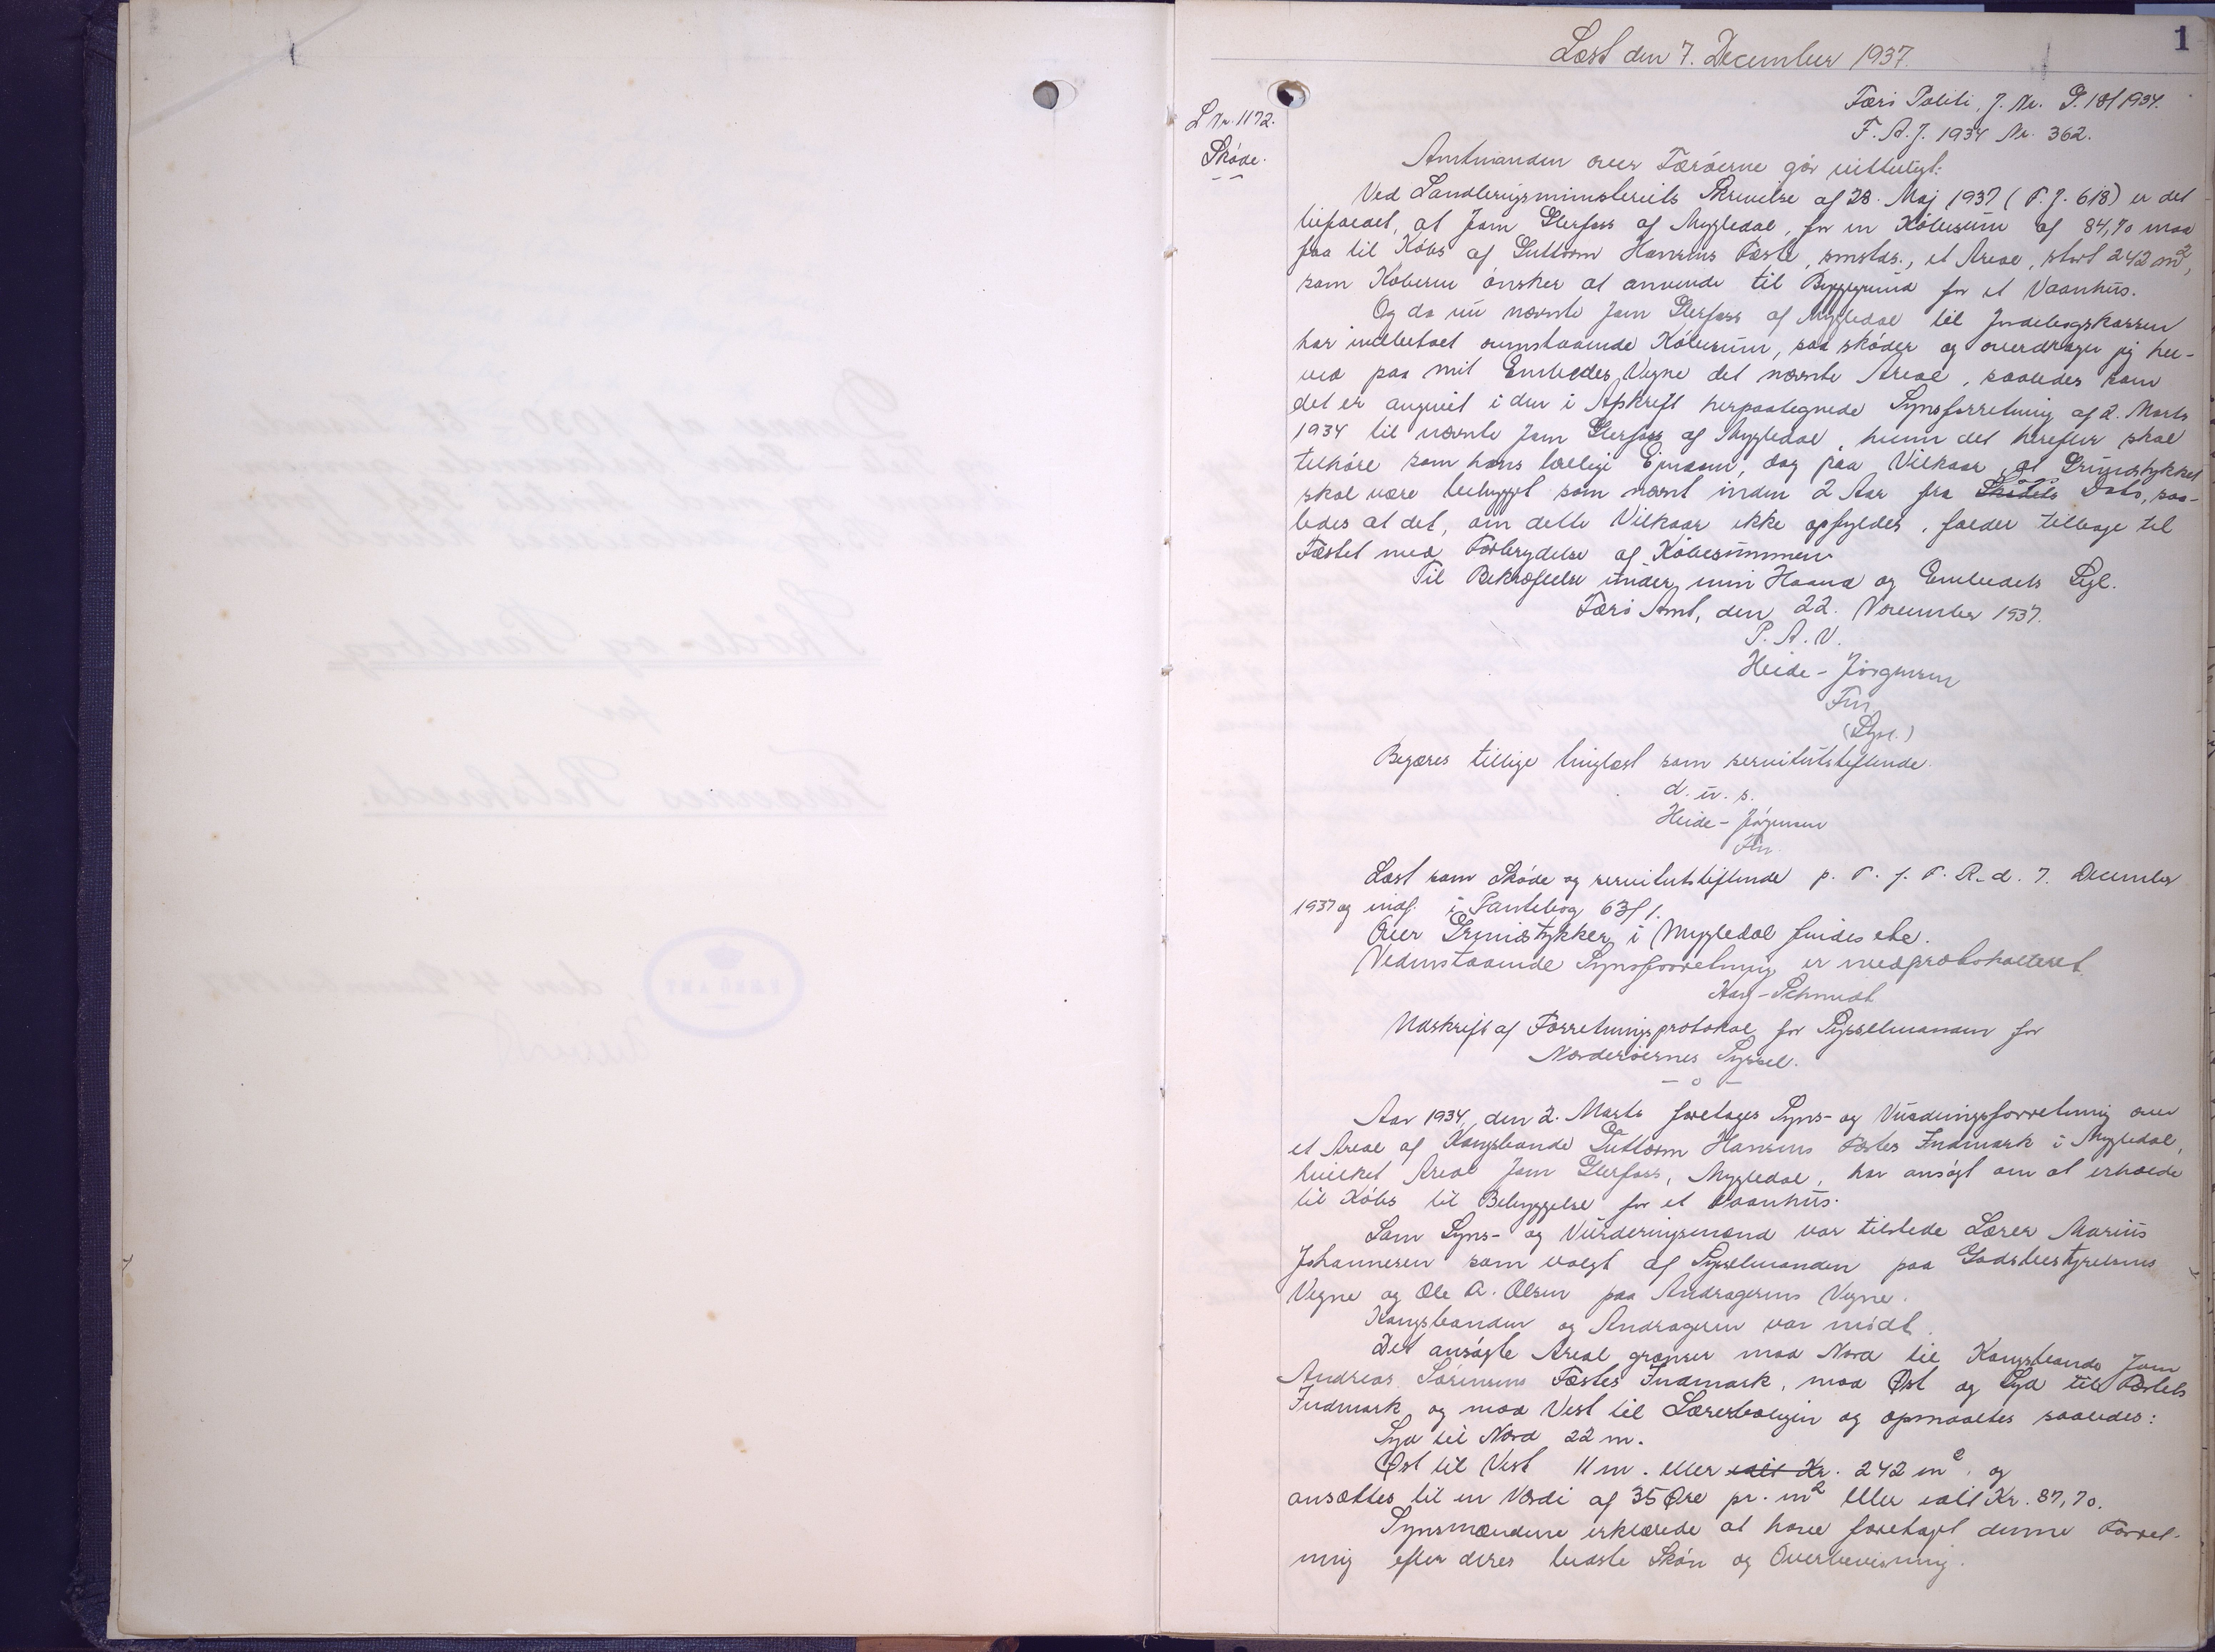 1
Læst den 7. December 1937.
Færø Politi, J. Nr. G. 181 1934.
L Nr. 1172.
F. A. J. 1934 Nr. 362.
Skøde.
Amtmanden over Færøerne gør vitterligt:
Ved Landbrugsministeriets Skrivelse af 28. Maj 1937 (P. J. 618) er det
bifaldet, at Jøam Glerfoss af Mygledal, for en Købesum af 84,70 maa
faa til Købs af Guttorm Hansens Fæste, smstds., et Areal, stort 242 m²,
som Køberen ønsker at anvende til Byggegrund for et Vaanhus.
Og da nu nævnte Joen Glerfoss af Mygledal til Jordebogskassen
har indbetalt ovenstaaende Købesum, saa skøder og overdrager jeg her-
ved paa mit Embedes Vegne det nævnte Areal, saaledes som
det er angivet i den i Afskrift herpaategnede Synsforretning af 2. Marts
1934 til nævnte Joen Glerfoss af Mygledal, hvem det herefter skal
tilhøre som hans lovlige Ejendom, dog paa Vilkaar, at Grundstykket
skal være bebygget som nævnt inden 2 Aar fra Skødets Dato, saa-
ledes at det, om dette Vilkaar ikke opfyldes, falder tilbage til
Fæstet med Forbrydelse af Købesummen.
Til Bekræftelse under min Haand og Embedets Segl.
Færø Amt, den 22. November 1937.
P. A. V.
Heide-Jørgensen
Fm.
(Segl.)
Begæres tillige tinglæst som servitutstiftende.
d. u. s.
Heide-Jørgensen
Fm.
Læst som Skøde og servitutstiftende p. T. f. F. R. d. 7. December
1937 og indf. i Pantebog 63 f 1.
Over Grundstykker i Mygledal findes ebe.
Vedenstaaende Synsforretning er medprotokolleret
Karg-Schmidt
Udskrift af Forretningsprotokol for Sysselmanden for
Norderøernes Syssel.
— o —
Aar 1934, den 2. Marts foretoges Syns- og Vurderingsforretning over
et Areal af Kongsbonde Guttorm Hansens Fæstes Indmark i Mygledal,
hvilket Areal Joen Glerfoss, Mygledal, har ansøgt om at erholde
til Købs til Bebyggelse for et Vaanhus.
Som Syns- og Vurderingsmænd var tilstede Lærer Marius
Johannesen som valgt af Sysselmanden paa Godsbestyrelsens
Vegne og Ole A. Olsen paa Andragerens Vegne.
Kongsbonden og Andrageren var mødt.
Det ansøgte Areal grænser mod Nord til Kongsbonde Joen
Andreas Sørensens Fæstes Indmark, mod Øst og Syd til Fæstets
Indmark og mod Vest til Lærerboligen og opmaaltes saaledes:
Syd til Nord 22 m.
Øst til Vest 11 m. eller ialt Kr. 242 m² og
ansættes til en Værdi af 35 Øre pr. m² eller ialt Kr. 87,70.
Synsmændene erklærede at have foretaget denne Forret-
ning efter deres bedste Skøn og Overbevisning.